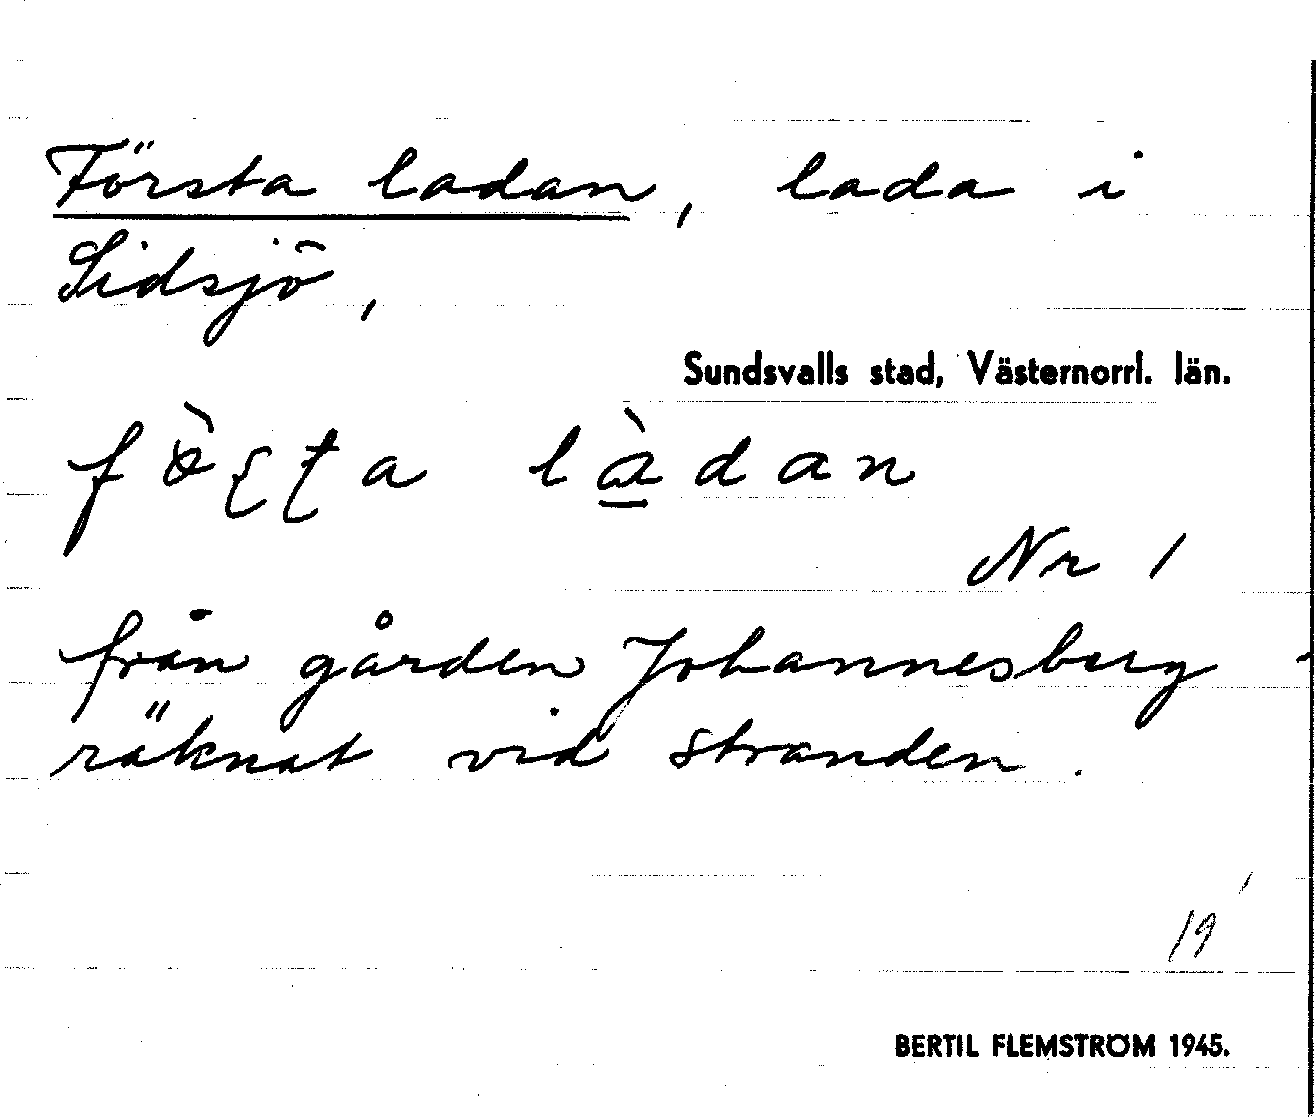 Första ladan, lada i
Sidsjö,
Sundsvalls stad, Västernorrl. län.
fö̀ʂʈa là̱dan
Nr 1
från gården Johannesberg
räknat vid stranden.
19
BERTIL FLEMSTRÖM 1945.